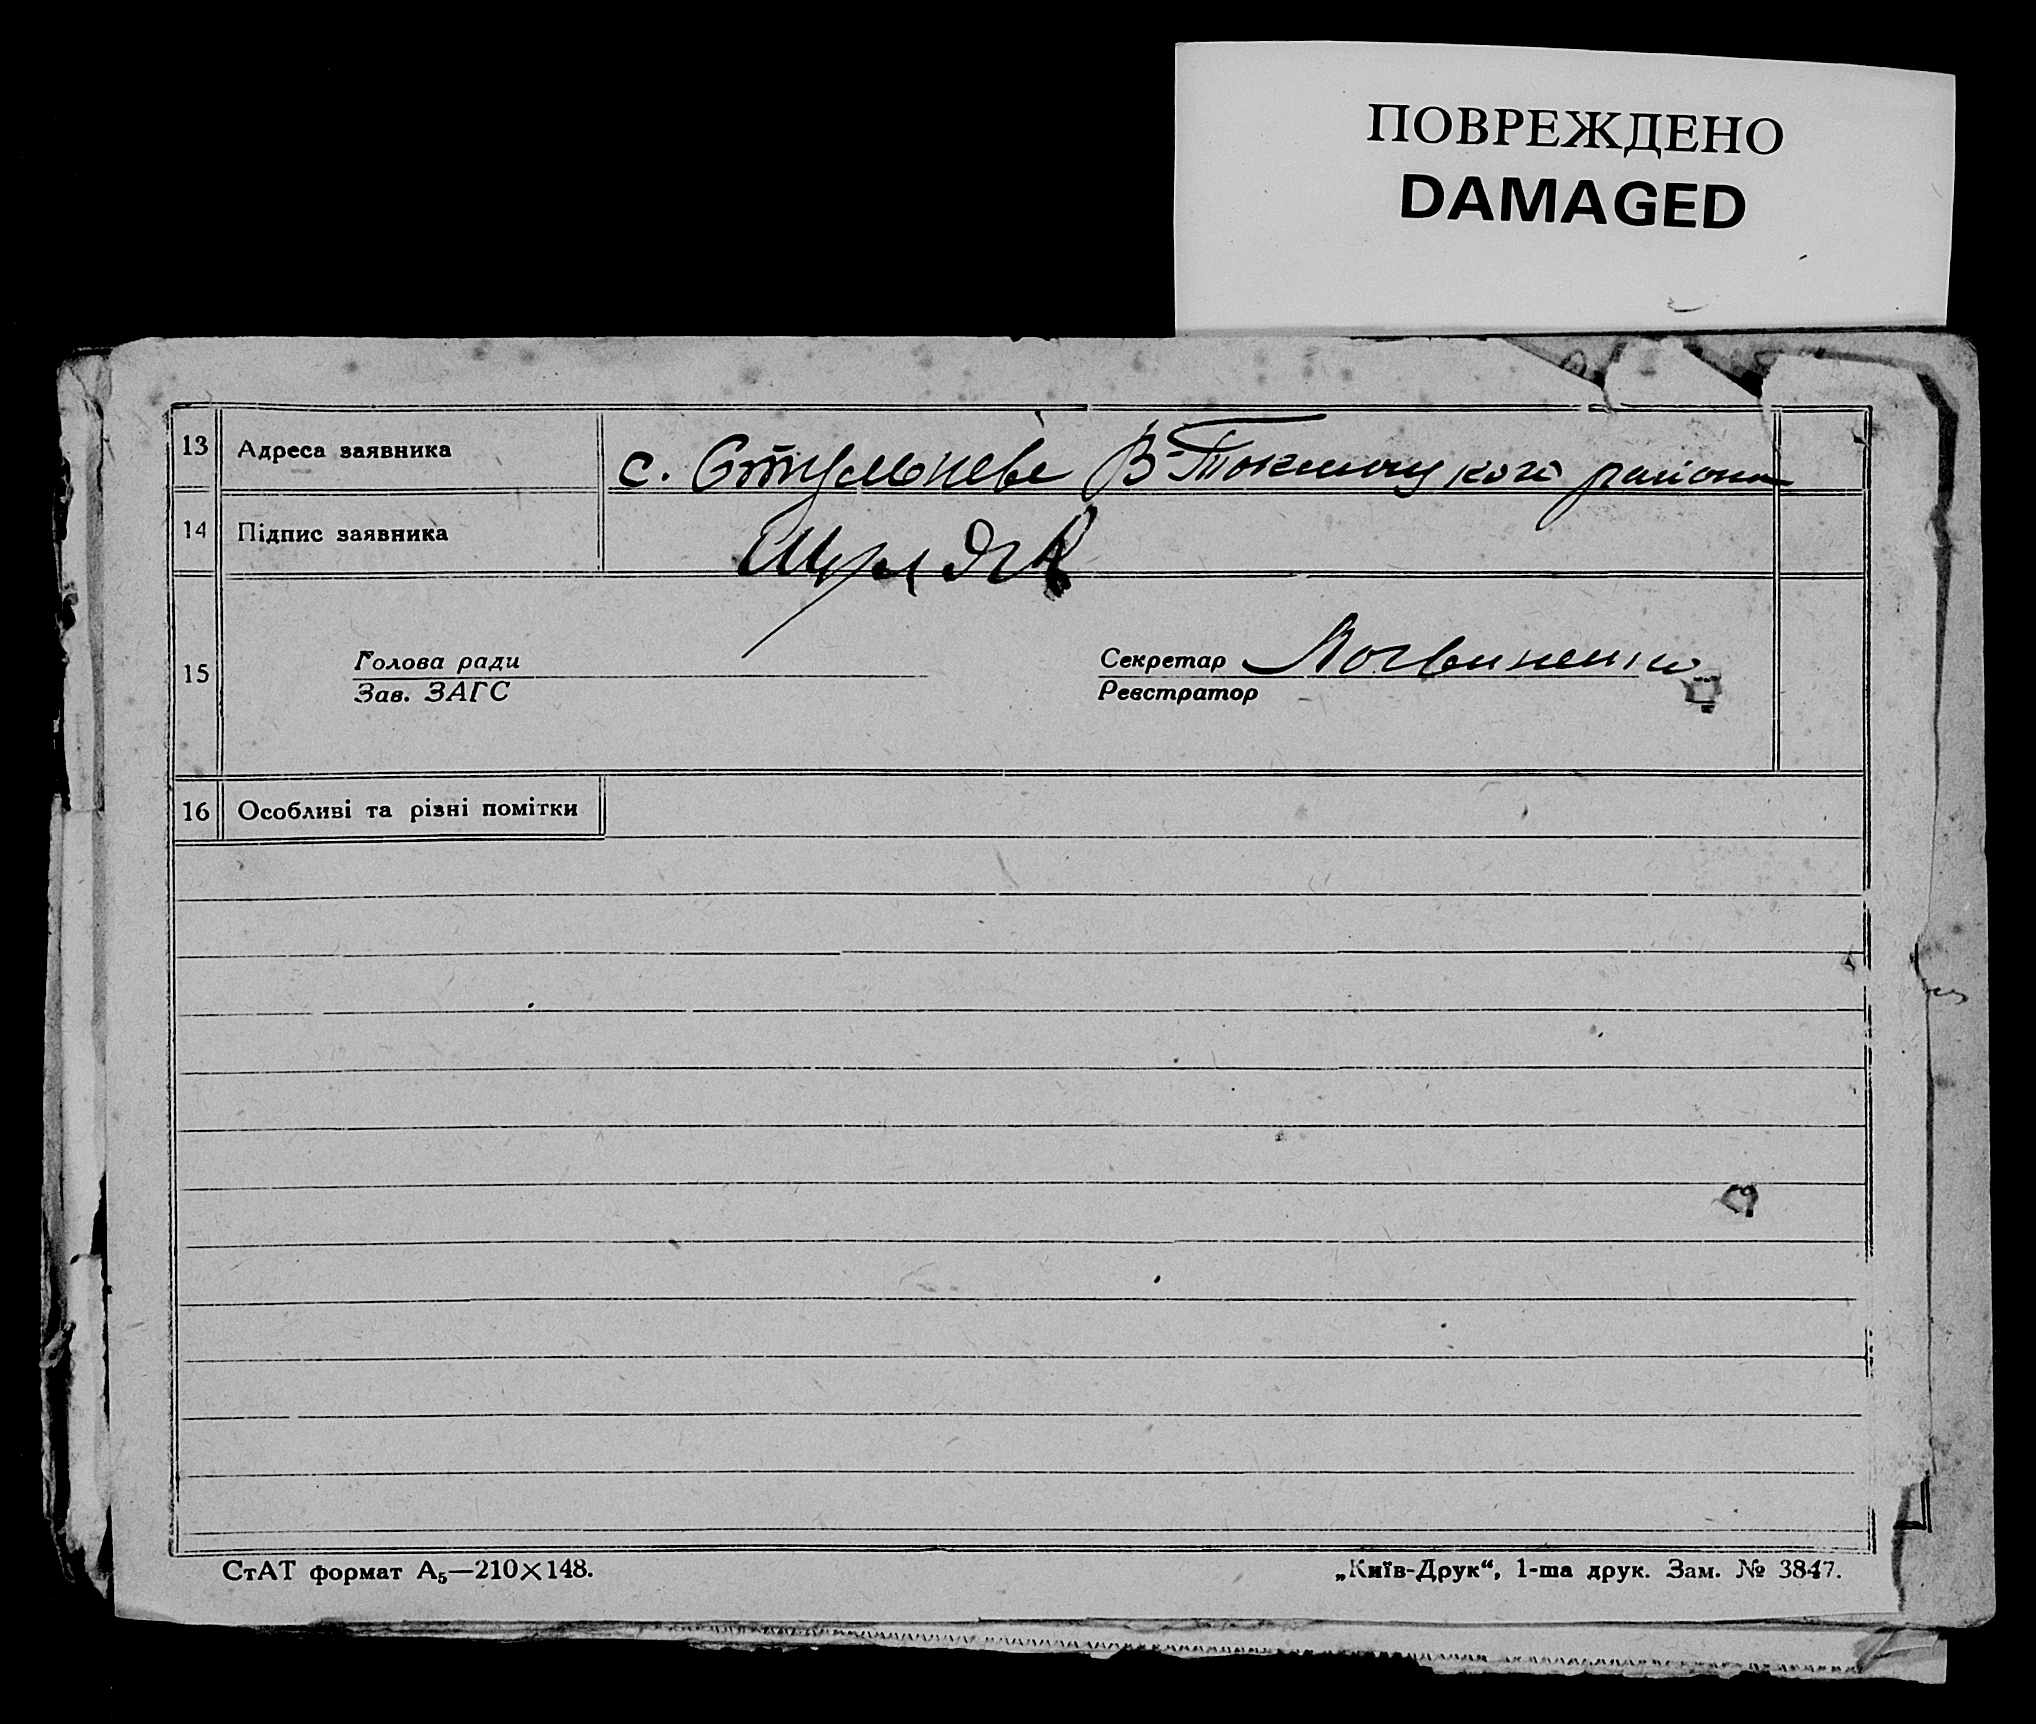 ПОВРЕЖДЕНО
DAMAGED
13 Адреса заявника с. Стульневе В-Токмацкого района
14 Підпис заявника
15 Голова ради Секретар Логвиненко
Зав. ЗАГС Реєстратор
16 Особливі та різні помітки
СтАТ формат А₅—210×148. „Київ-Друк“, 1-ша друк. Зам. № 3847.